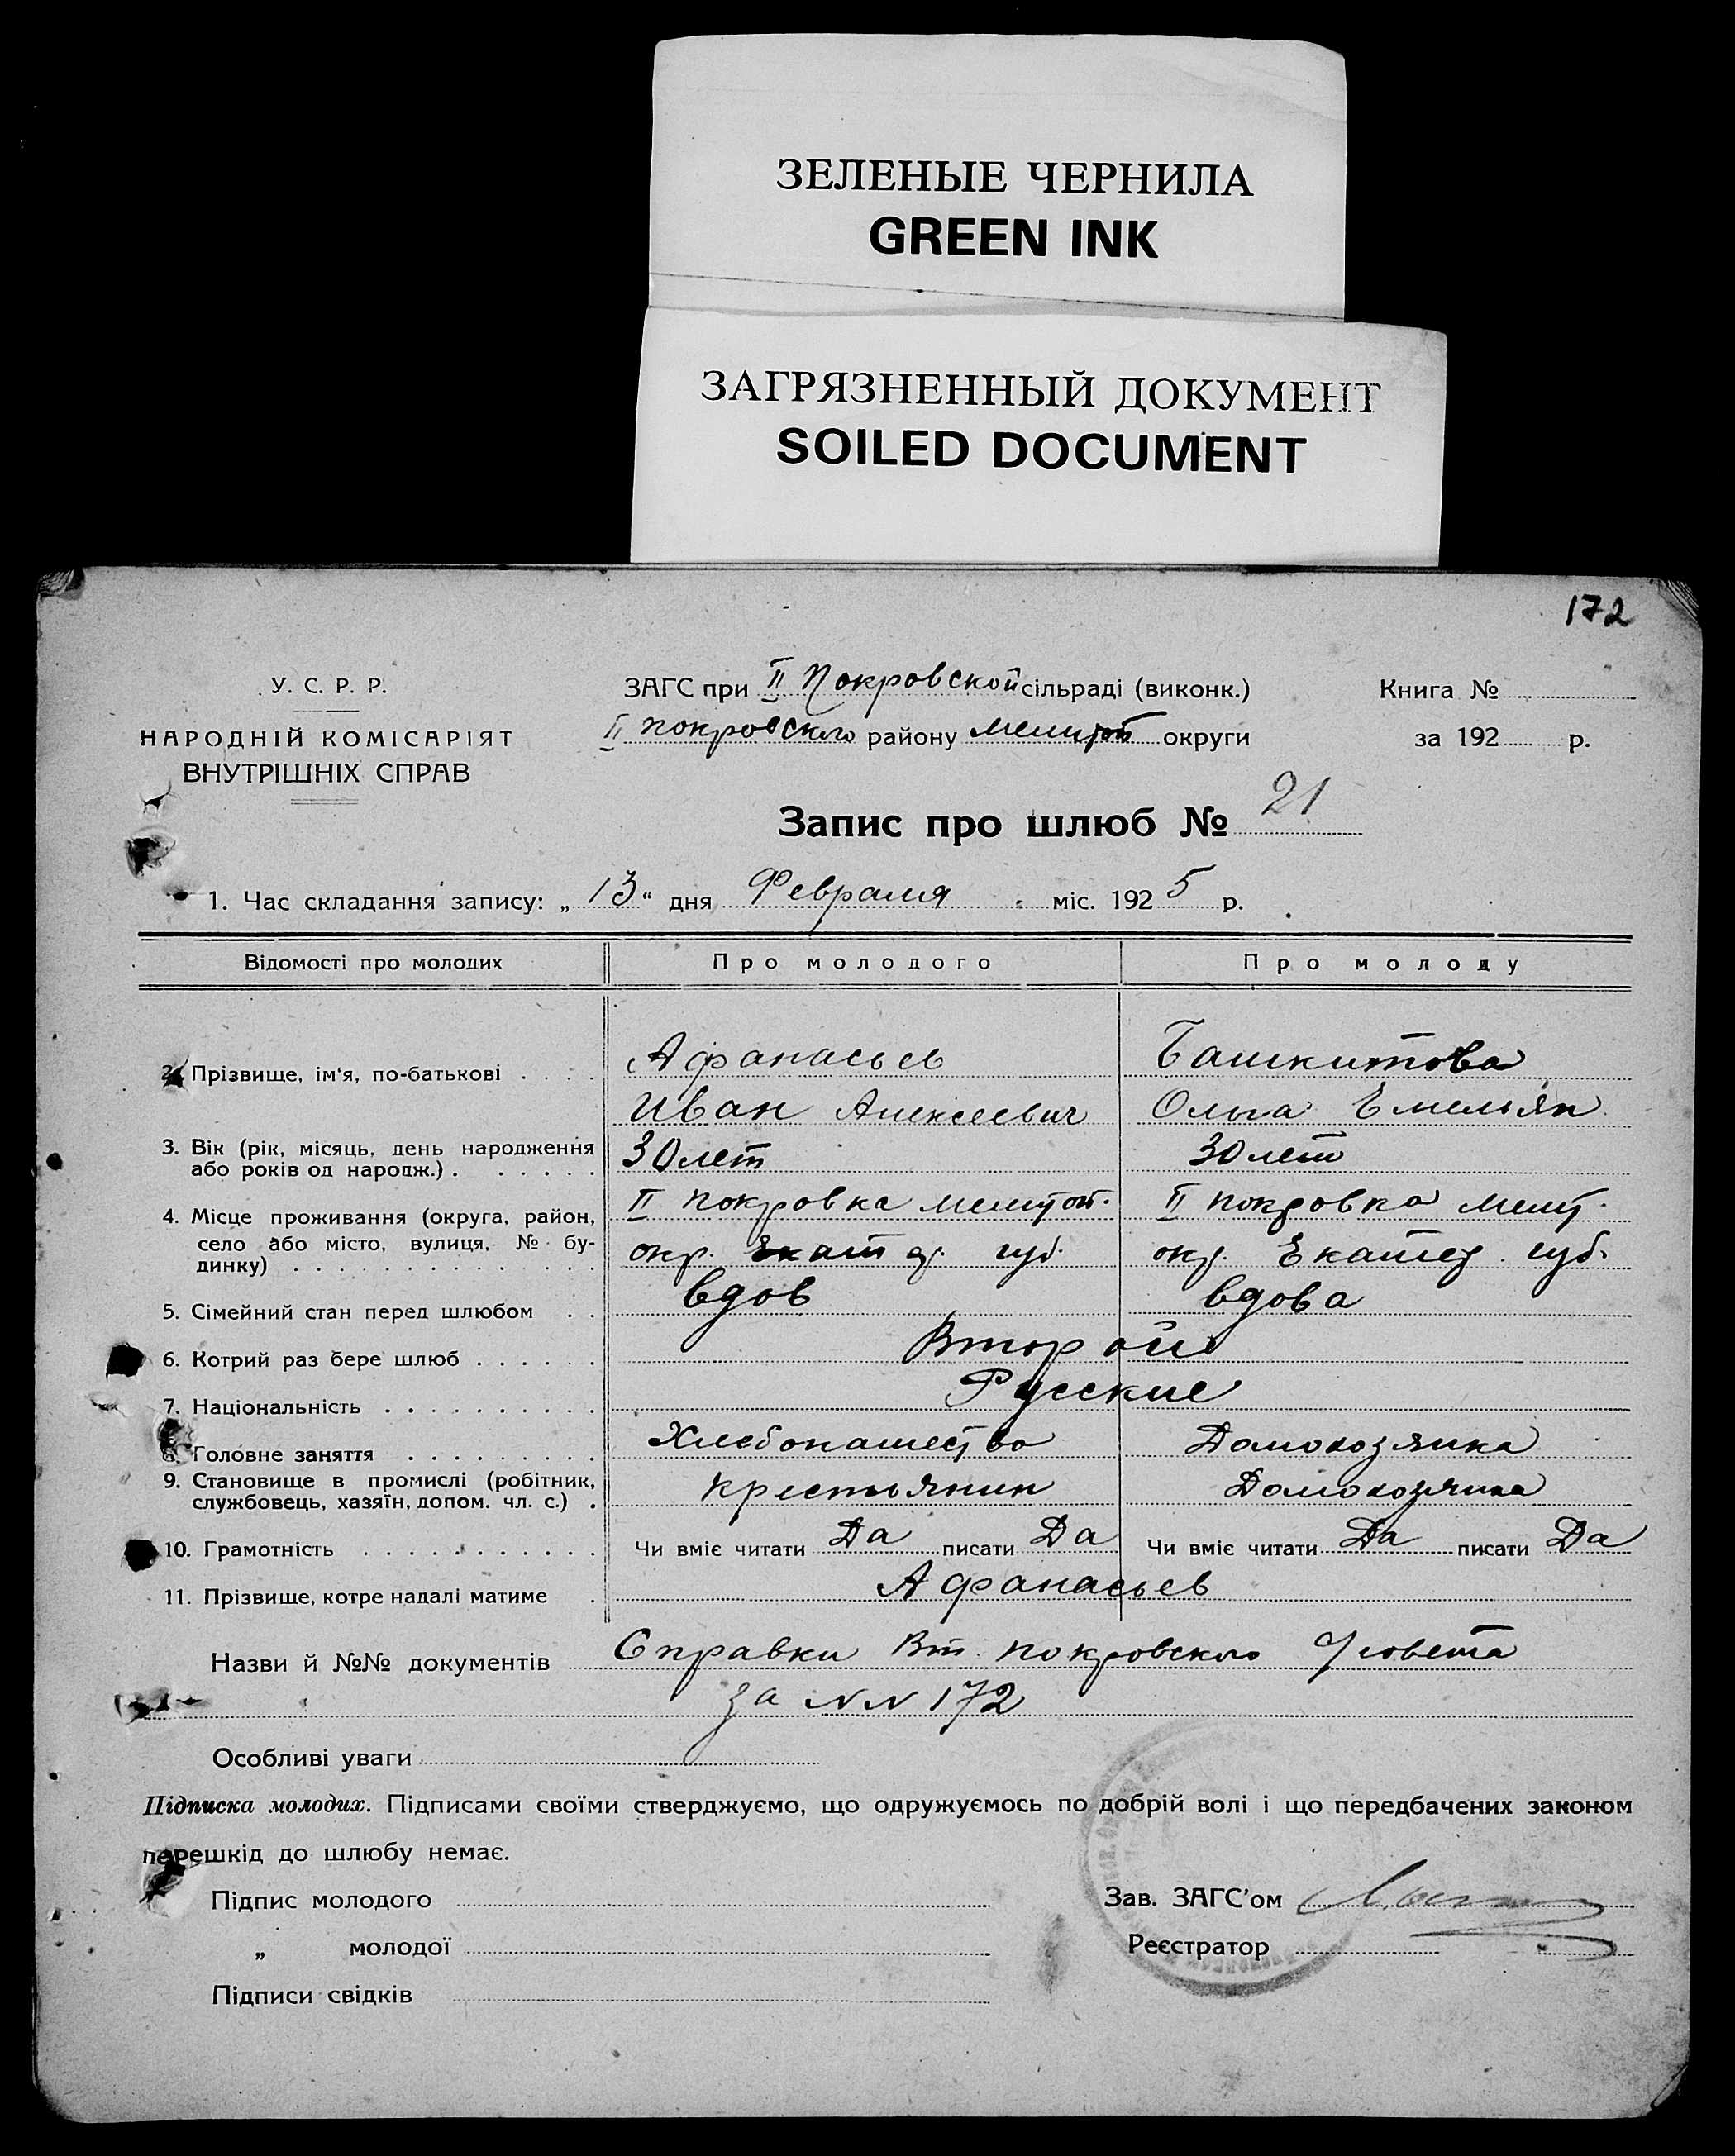 ЗЕЛЕНЫЕ ЧЕРНИЛА
GREEN INK
ЗАГРЯЗНЕННЫЙ ДОКУМЕНТ
SOILED DOCUMENT
172
У. С. Р. Р.
НАРОДНІЙ КОМІСАРІЯТ
ВНУТРІШНІХ СПРАВ
ЗАГС при II Покровской сільраді (виконк.)
II покровского району Мелитоп округи
Книга №
за 192 р.
Запис про шлюб № 21
1. Час складання запису: „13“ дня Февраля міс. 1925 р.
Відомості про молодих Про молодого Про молоду
2. Прізвище, ім'я, по-батькові Афанасьев Башкитова
Иван Алексеевич Ольга Емельян
3. Вік (рік, місяць, день народження 30 лет 30 лет
або років од народж.)
4. Місце проживання (округа, район, II покровка мелитоп. II покровка мелит.
село або місто, вулиця, № бу- окр. Екатер. губ. окр. Екатер. губ.
динку)
5. Сімейний стан перед шлюбом вдов вдова
6. Котрий раз бере шлюб Второй
7. Національність Русские
8. Головне заняття Хлебопашество Домохозяйка
9. Становище в промислі (робітник, крестьянин Домохозяйка
службовець, хазяїн, допом. чл. с.)
10. Грамотність Чи вміє читати Да писати Да Чи вміє читати Да писати Да
11. Прізвище, котре надалі матиме Афанасьев
Назви й №№ документів Справки Вт. покровского
за NN 172
Особливі уваги
Підписка молодих. Підписами своїми стверджуємо, що одружуємось по добрій волі і що передбачених законом
перешкід до шлюбу немає.
Підпис молодого
„ молодої
Підписи свідків
Зав. ЗАГС'ом
Реєстратор